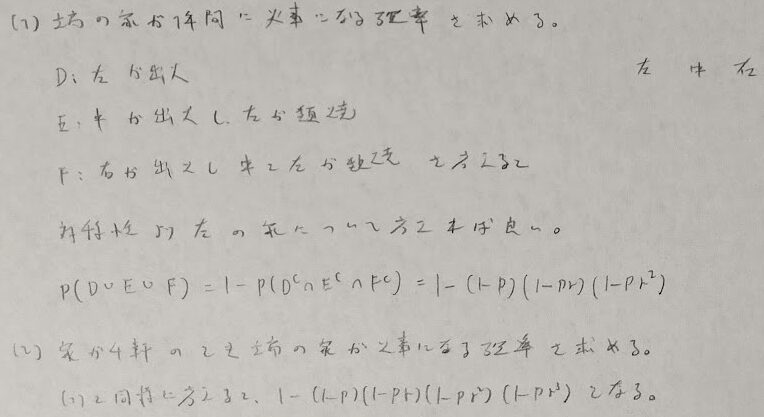 (1) 端の家が1年間に火事になる確率を求める。
D: 左が出火
左 中 右
E: 中が出火し、左が類焼
F: 右が出火し 中と左が類焼 と考えると
対称性より 左の家について考えれば良い。
P(D∪E∪F) = 1 - P(Dᶜ∩Eᶜ∩Fᶜ) = 1 - (1-p)(1-pr)(1-pr²)
(2) 家が4軒のとき端の家が火事になる確率を求める。
(1)と同様に考えると、1 - (1-p)(1-pr)(1-pr²)(1-pr³) となる。